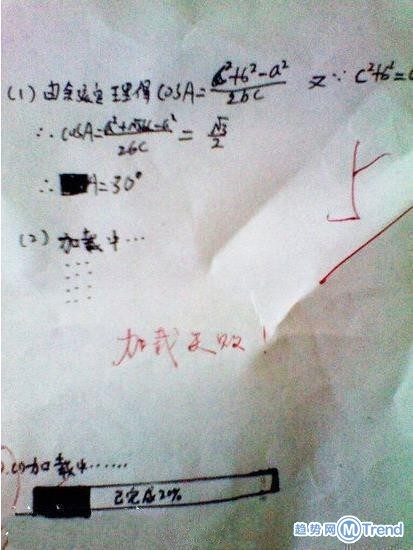 (1) 由余弦定理得 cosA = (c²+b²-a²)/2bc 又∵ c²+b²=
∴ cosA = (a²+√3bc-a²)/2bc = √3/2
∴ A=30°
5
(2) 加载中…
加载失败!
(1) 加载中……
已完成20%
趋势网 Trend